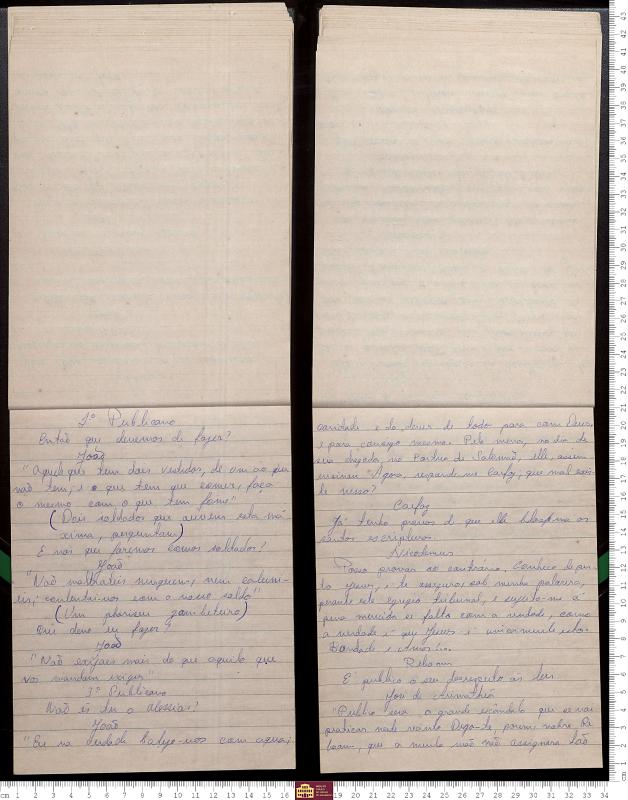 1º Publicano
Então que devemos de fazer?
João
"Aquele que tem dois vestidos, dê um ao que
não tem, e o que tem que comer, faça
o mesmo com o que tem fome"
(Dois soldados que ouvem esta má
xima, perguntam)
E nós que faremos como soldados?
João
"Não maltrateis ninguem, nem caluni-
eis, contentai-vos com o vosso soldo"
(Um phariseu zombeteiro)
Que devo eu fazer?
João
"Não exijaes mais do que aquilo que
vos mandam exigir"
3º Publicano
Não és tu o Messias?
João
"Eu na verdade batizo-vos com agua,
caridade e do dever de todo para com Deus,
e para consigo mesmo. Pelo menos, no dia de
sua chegada, no Portico de Salomão, elle assim
ensinou. Agora, responde-me Caifaz, que mal exis-
te nisso?
Caifaz
Já tenho provas de que elle blasphema as
santas escripturas
Nicodemus
Posso provar ao contrario, conheço de per-
to Jesus, e te asseguro, sob minha palavra,
perante este egregio tribunal, e sujeito-me á
pena merecida se falto com a verdade, como
a verdade é que Jesus é unicamente
Bondade e Amor
Roboam
É publico o seu desrespeito ás leis
José de Arimathéa
"Publico será o grande escandalo que se vae
praticar neste recinto. Digo-te, porem, nobre Ro
boam, que a minha mão não assignara tão